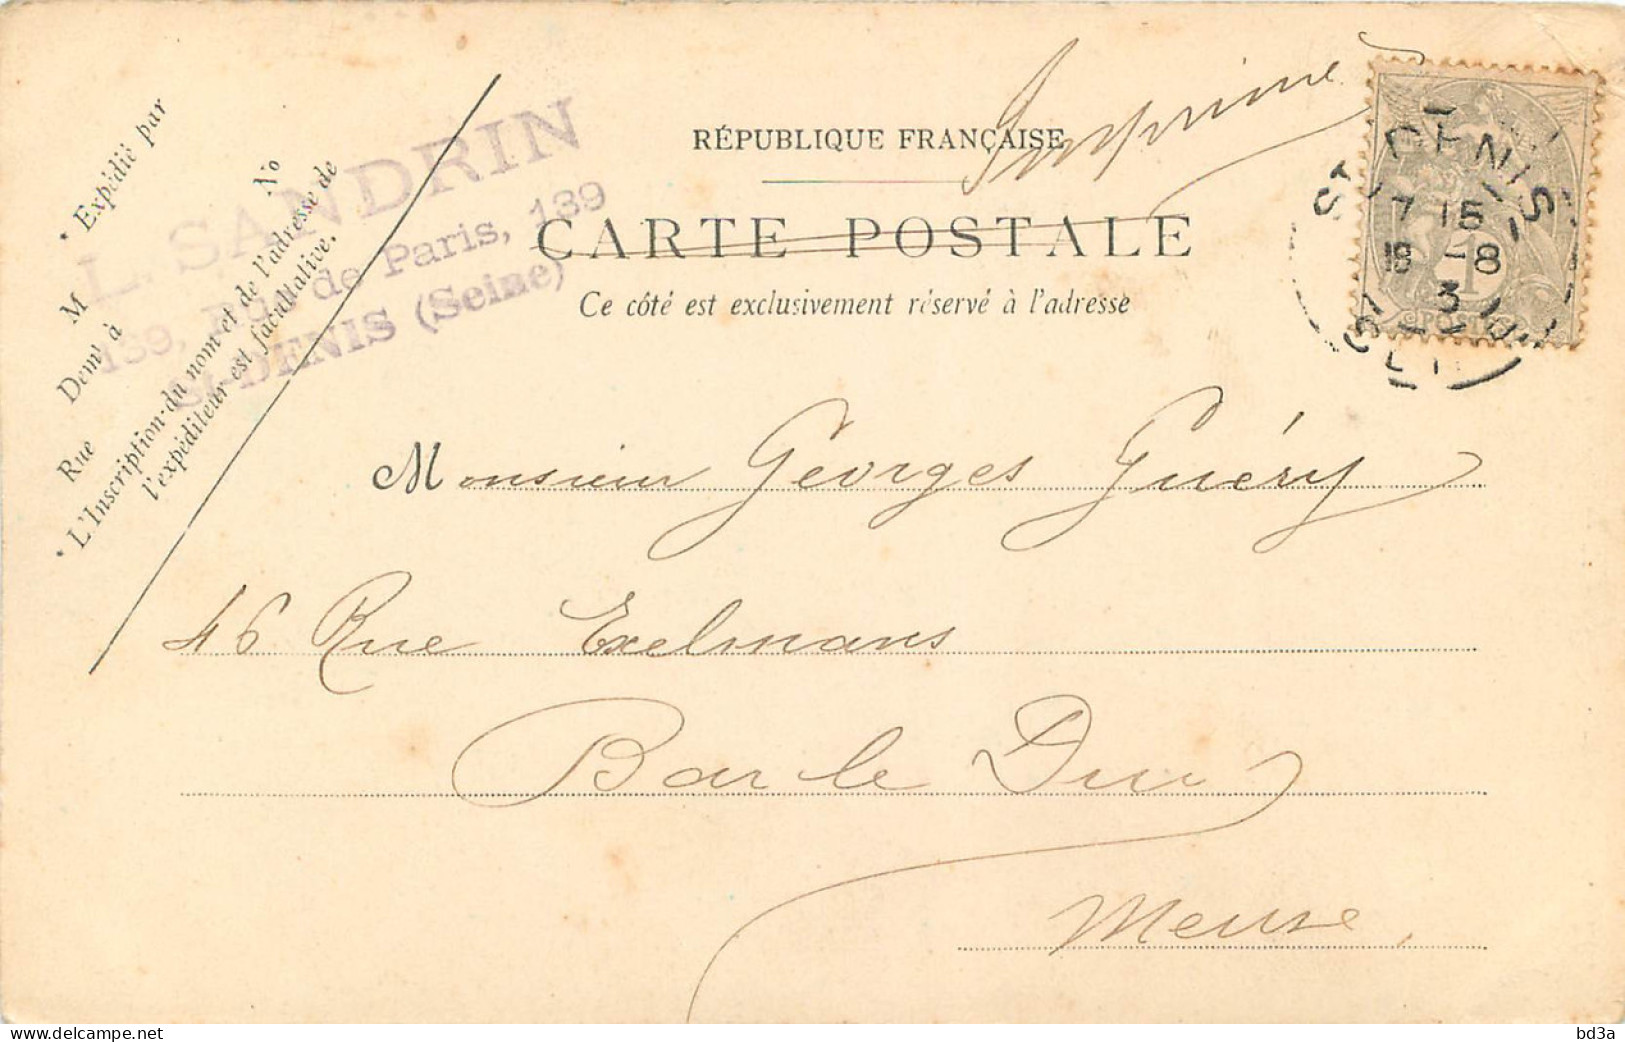 Expédié par
M
Demt à
Rue
No
* L'Inscription du nom et de l'adresse de
l'expéditeur est facultative.
L. SANDRIN
139, Rue de Paris, 139
St-DENIS (Seine)
Imprimé
RÉPUBLIQUE FRANÇAISE
CARTE POSTALE
Ce côté est exclusivement réservé à l'adresse
ST DENIS
7 15
18 -8
3
1
POSTES
Monsieur Georges Guéry
46 Rue Exelmans
Bar le Duc
Meuse,
www.delcampe.net
bd3a